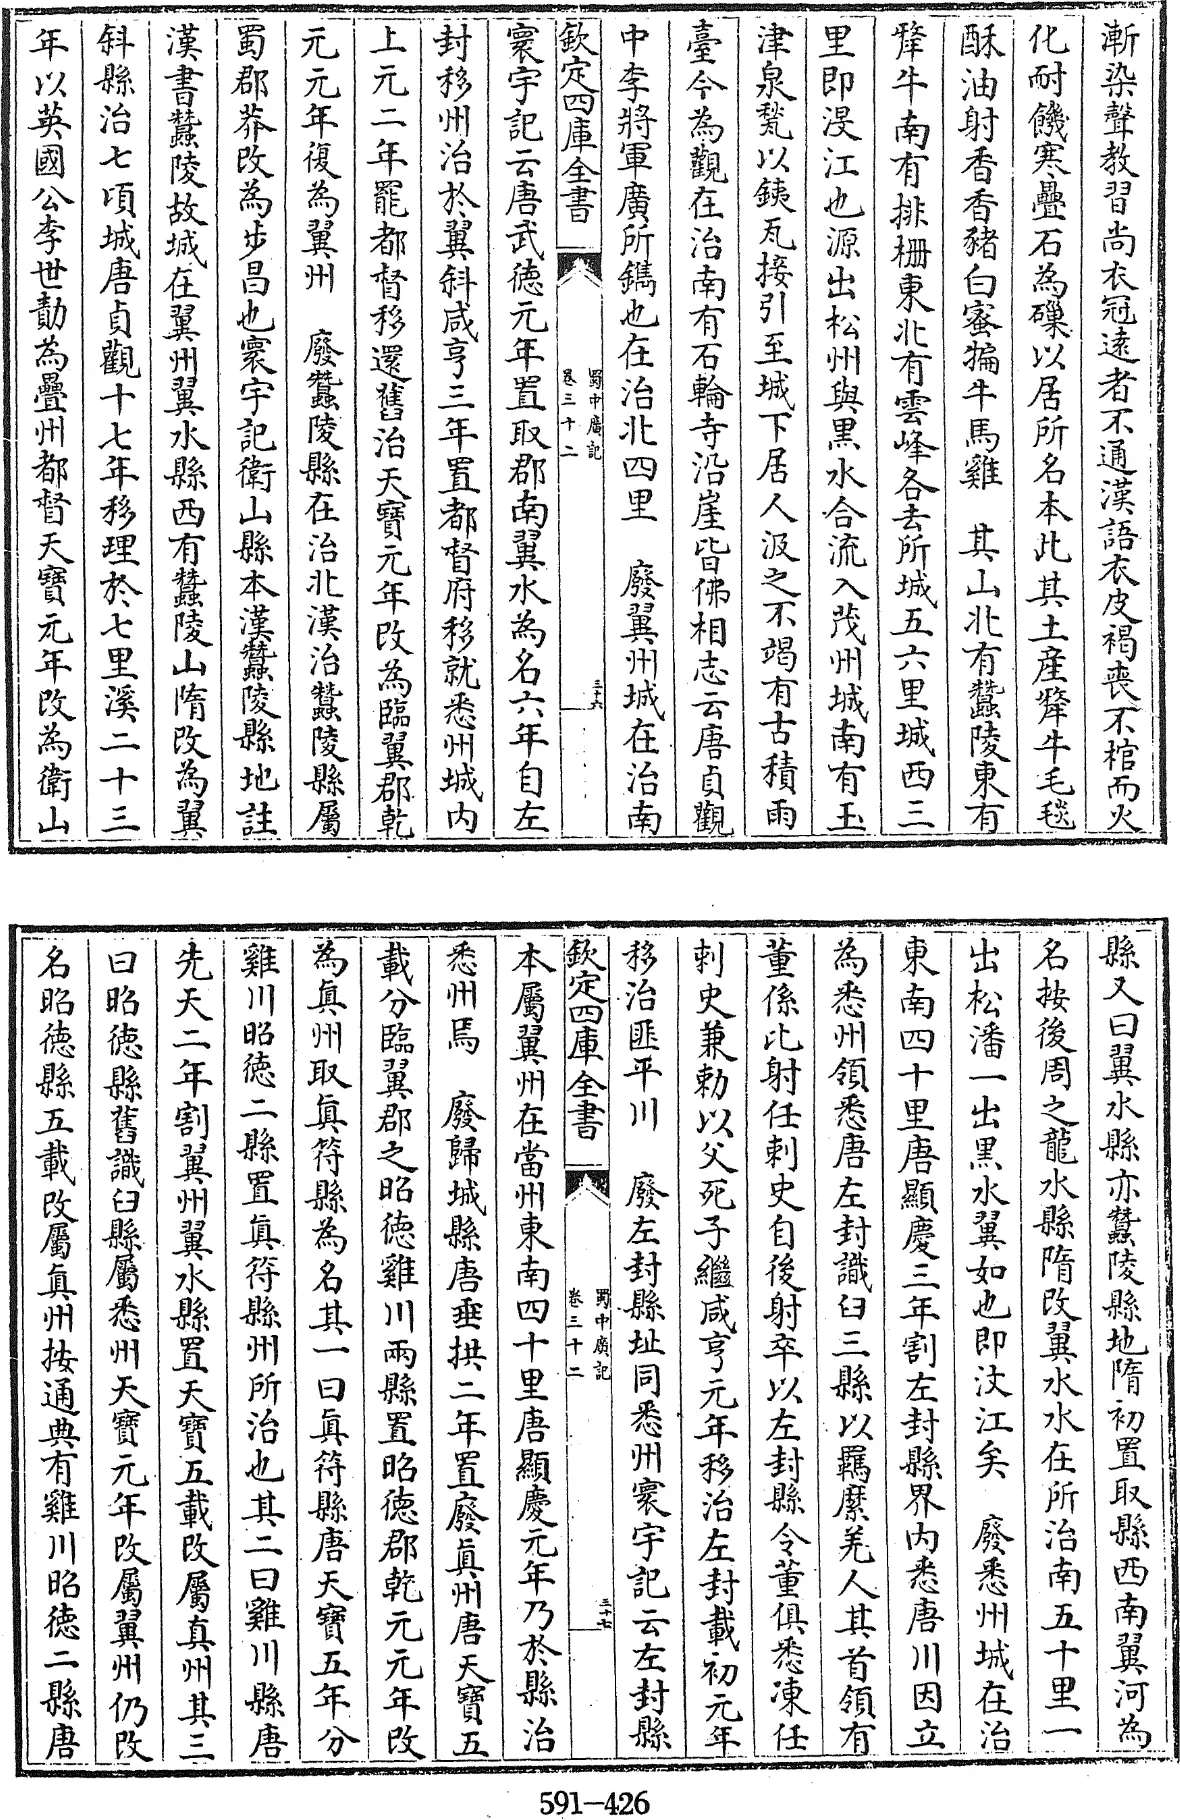 漸染聲教習尚衣冠遠者不通漢語衣皮褐喪不棺而火
化耐饑寒疊石為磲以居所名本此其土産犛牛毛毯
酥油射香香豬白蜜犏牛馬雞　其山北有蠶陵東有
犛牛南有排柵東北有雲峰各去所城五六里城西三
里即浸江也源出松州與黒水合流入茂州城南有玉
津泉甃以銕瓦接引至城下居人汲之不竭有古積雨
臺今為觀在治南有石輪寺沿崖皆佛相志云唐貞觀
中李將軍廣所鐫也在治北四里　廢翼州城在治南
欽定四庫全書
蜀中廣記
卷三十二
三十六
寰宇記云唐武徳元年置取郡南翼水為名六年自左
封移州治於翼斜咸亨三年置都督府移就悉州城内
上元二年罷都督移還舊治天寶元年改為臨翼郡乾
元元年復為翼州　廢蠶陵縣在治北漢治蠶陵縣屬
蜀郡莽改為步昌也寰宇記衛山縣本漢蠶陵縣地註
漢書蠶陵故城在翼州翼水縣西有蠶陵山隋改為翼
斜縣治七頃城唐貞觀十七年移理於七里溪二十三
年以英國公李世勣為疊州都督天寶元年改為衛山
縣又曰翼水縣亦蠶陵縣地隋初置取縣西南翼河為
名按後周之龍水縣隋改翼水水在所治南五十里一
出松潘一出黒水翼如也即汶江矣　廢悉州城在治
東南四十里唐顯慶三年割左封縣界内悉唐川因立
為悉州領悉唐左封識臼三縣以羈縻羌人其首領有
董係比射任刺史自後射卒以左封縣令董俱悉凍任
刺史兼勅以父死子繼咸亨元年移治左封載初元年
移治匪平川　廢左封縣址同悉州寰宇記云左封縣
欽定四庫全書
蜀中廣記
卷三十二
三十七
本屬翼州在當州東南四十里唐顯慶元年乃於縣治
悉州焉　廢歸城縣唐垂拱二年置廢真州唐天寶五
載分臨翼郡之昭徳雞川兩縣置昭徳郡乾元元年改
為真州取真符縣為名其一曰真符縣唐天寶五年分
雞川昭徳二縣置真符縣州所治也其二曰雞川縣唐
先天二年割翼州翼水縣置天寶五載改屬真州其三
曰昭徳縣舊識臼縣屬悉州天寶元年改屬翼州仍改
名昭徳縣五載改屬真州按通典有雞川昭徳二縣唐
591—426